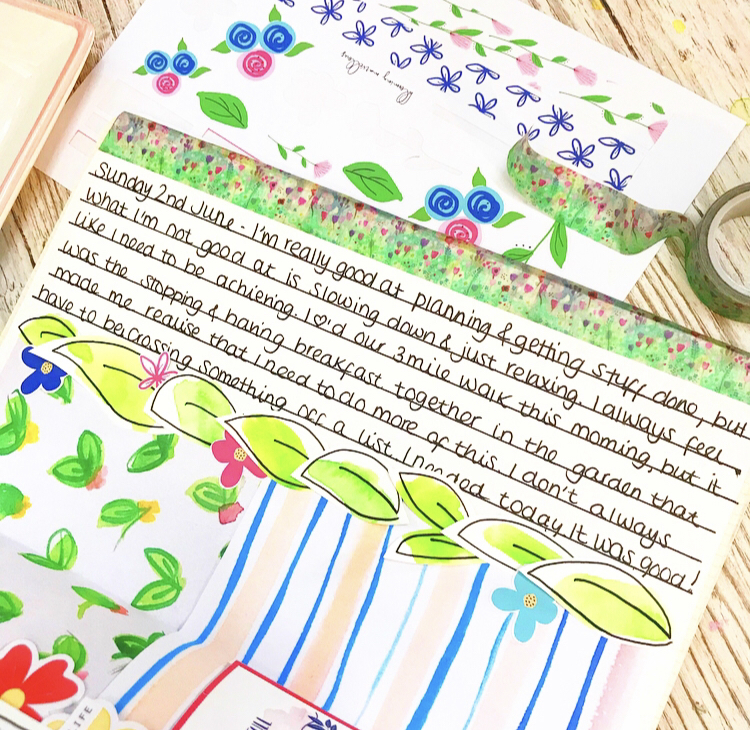 Sunday 2nd June - I'm really good at planning & getting stuff done, but
what I'm not good at is slowing down & just relaxing. I always feel
like I need to be achieving. I ♡'d our 3mile walk this morning, but it
was the stopping & having breakfast together in the garden that
made me realise that I need to do more of this. I don't always
have to be crossing something off a list. I needed today. It was good!
LIFE